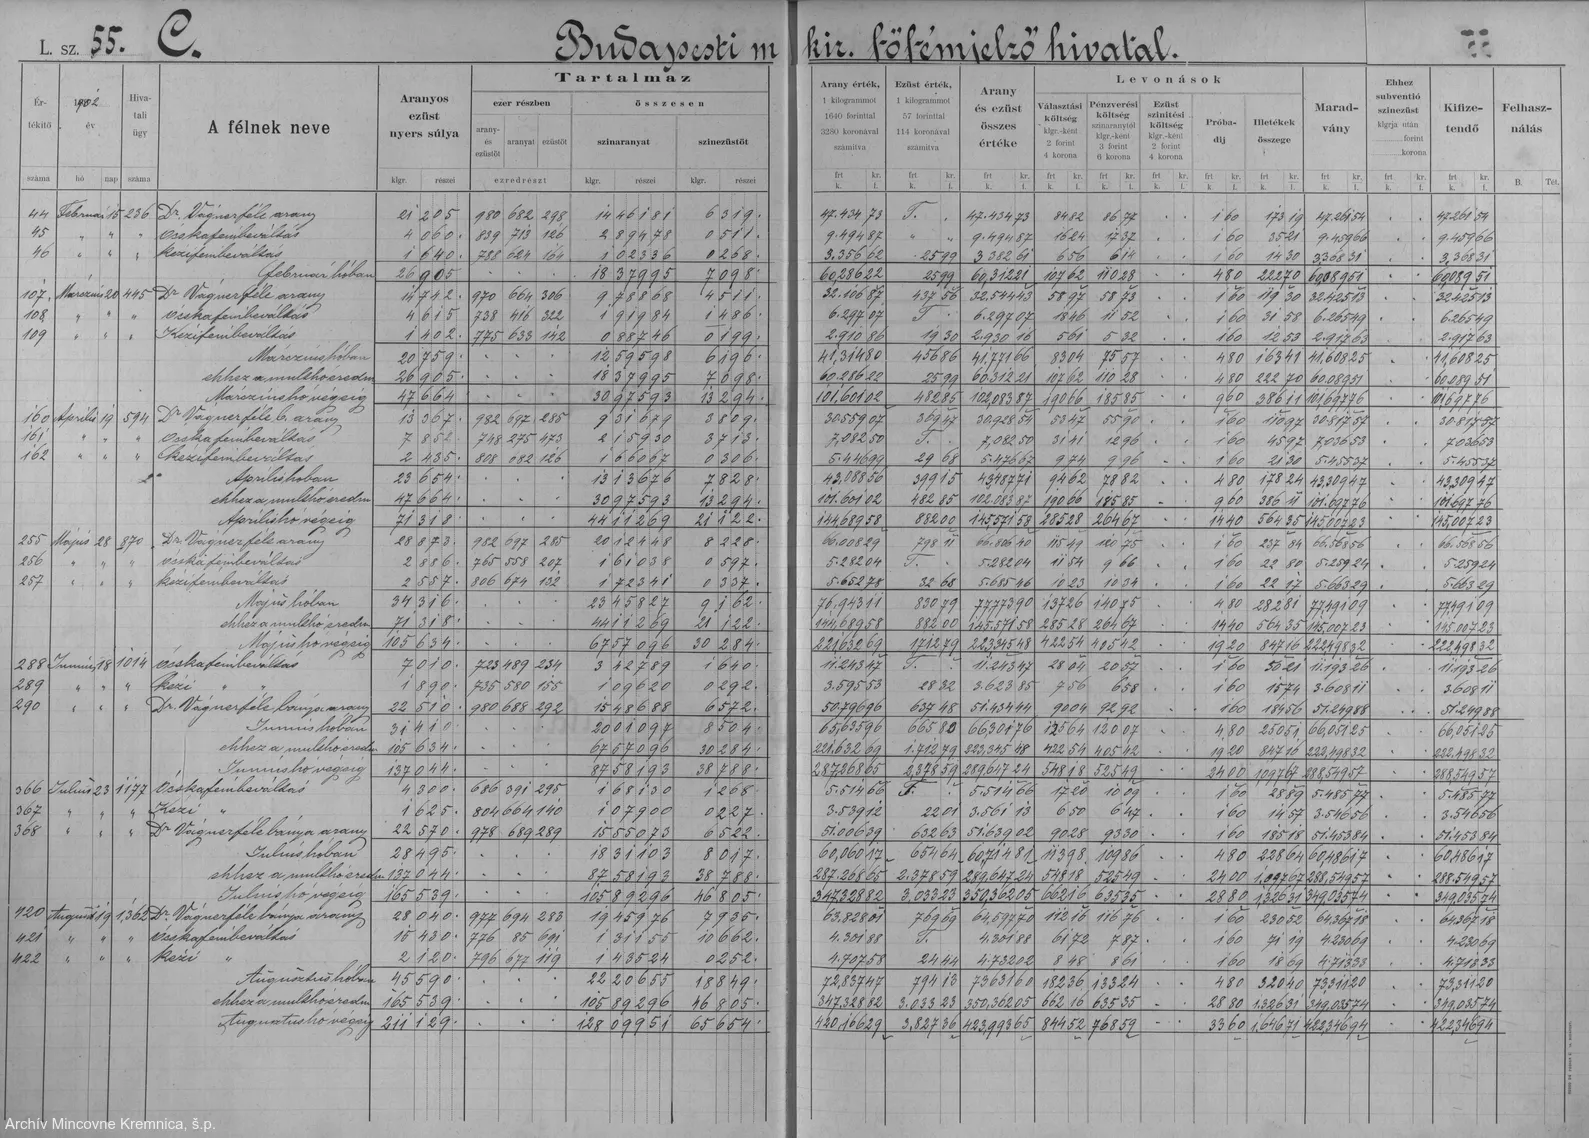 L. sz. 55. C. Budapesti m kir. főfémjelző hivatal.
Tartalmaz
Levonások
Értékítő száma
1902 év
hó
nap
Hivatali ügy száma
A félnek neve
Aranyos ezüst nyers súlya
klgr. részei
ezer részben
arany- és ezüstöt
aranyat
ezüstöt
ezredrészt
összesen
szinaranyat
klgr. részei
szinezüstöt
klgr. részei
Arany érték, 1 kilogrammot 1640 forinttal 3280 koronával számítva
Ezüst érték, 1 kilogrammot 57 forinttal 114 koronával számítva
Arany és ezüst összes értéke
Választási költség klgr.-ként 2 forint 4 korona
Pénzverési költség szinaranytól klgr.-ként 3 forint 6 korona
Ezüst szinítési költség klgr.-ként 2 forint 4 korona
Próbadij
Illetékek összege
Maradvány
Ehhez subventió szinezüst klgrja után forint korona
Kifizetendő
Felhasználás
B. Tét.
44 Február 15 236 Dr. Vágnerféle arany 21 205 980 682 298 14 46181 6 319 47.434 73 T. 47.434 73 84 82 86 77 1 60 173 19 47.261 54 47.261 54
45 " " " ócskafémbeváltás 4 060 839 713 126 2 89478 0 511 9.494 87 " " 9.494 87 16 24 17 37 1 60 35 21 9.459 66 9.459 66
46 " " " kézifémbeváltás 1 640 788 624 164 1 02336 0 268 3.356 62 25 99 3.382 61 6 56 6 14 1 60 14 30 3.368 31 3.368 31
február hóban 26 905 18 37995 7 098 60,286 22 25 99 60,312 21 107 62 110 28 4 80 222 70 60,089 51 60,089 51
107 Március 20 445 Dr Vágnerféle arany 14 742 970 664 306 9 78868 4 511 32.106 87 437 56 32.544 43 58 97 58 73 1 60 119 30 32.425 13 32.425 13
108 " " " ócskafémbeváltás 4 615 738 416 322 1 91984 1 486 6.297 07 T. 6.297 07 18 46 11 52 1 60 31 58 6.265 49 6.265 49
109 " " " Kézifémbeváltás 1 402 775 633 142 0 88746 0 199 2.910 86 19 30 2.930 16 5 61 5 32 1 60 12 53 2.917 63 2.917 63
Márczius hóban 20 759 12 59598 6 196 41,314 80 456 86 41,771 66 83 04 75 57 4 80 163 41 41,608 25 41,608 25
ehhez a multhó eredm 26 905 18 37995 7 098 60.286 22 25 99 60.312 21 107 62 110 28 4 80 222 70 60.089 51 60.089 51
Márcziushó végéig 47 664 30 97593 13 294 101.601 02 482 85 102,083 87 190 66 185 85 9 60 386 11 101.697 76 101.697 76
160 Április 19 594 Dr Vágnerféle b. arany 13 367 982 697 285 9 31679 3 809 30.559 07 369 47 30.928 54 53 47 55 90 1 60 110 97 30.817 57 30.817 57
161 " " " ócskafémbeváltás 7 852 748 275 473 2 15930 3 713 7.082 50 T. 7.082 50 31 41 12 96 1 60 45 97 7.036 53 7.036 53
162 " " " kézifémbeváltás 2 435 808 682 126 1 66067 0 306 5.446 99 29 68 5.476 67 9 74 9 96 1 60 21 30 5.455 37 5.455 37
Áprilishóban 23 654 13 13676 7 828 43,088 56 399 15 43,487 71 94 62 78 82 4 80 178 24 43,309 47 43,309 47
ehhez a multhó eredm 47 664 30 97593 13 294 101.601 02 482 85 102.083 87 190 66 185 85 9 60 386 11 101.697 76 101.697 76
Áprilishó végéig 71 318 44 11269 21 122 144,689 58 882 00 145,571 58 285 28 264 67 14 40 564 35 145,007 23 145,007 23
255 Május 28 870 Dr. Vágnerféle arany 28 873 982 697 285 20 12448 8 228 66.008 29 798 11 66.806 40 115 49 120 75 1 60 237 84 66.568 56 66.568 56
256 " " " ócskafémbeváltás 2 886 765 558 207 1 61038 0 597 5.282 04 T. 5.282 04 11 54 9 66 1 60 22 80 5.259 24 5.259 24
257 " " " kézifémbeváltás 2 557 806 674 132 1 72341 0 337 5.652 78 32 68 5.685 46 10 23 10 34 1 60 22 17 5.663 29 5.663 29
Május hóban 34 316 23 45827 9 162 76,943 11 830 79 77,773 90 137 26 140 75 4 80 282 81 77,491 09 77,491 09
ehhez a multhó eredm 71 318 44 11269 21 122 144,689 58 882 00 145,571 58 285 28 264 67 14 40 564 35 145,007 23 145,007 23
Májushó végéig 105 634 67 57096 30 284 221,632 69 1712 79 223,345 48 422 54 405 42 19 20 847 16 222,498 32 222,498 32
288 Junius 18 1014 ócskafémbeváltás 7 010 723 489 234 3 42789 1 640 11.243 47 T. 11.243 47 28 04 20 57 1 60 50 21 11.193 26 11.193 26
289 " " " kézi " 1 890 735 580 155 1 09620 0 292 3.595 53 28 32 3.623 85 7 56 6 58 1 60 15 74 3.608 11 3.608 11
290 " " " Dr. Vágnerféle bánya arany 22 510 980 688 292 15 48688 6 572 50.796 96 637 48 51.434 44 90 04 92 92 1 60 184 56 51.249 88 51.249 88
Junius hóban 31 410 20 01097 8 504 65,635 96 665 80 66,301 76 125 64 120 07 4 80 250 51 66,051 25 66,051 25
ehhez a multhó eredm 105 634 67 57096 30 284 221.632 69 1.712 79 223,345 48 422 54 405 42 19 20 847 16 222,498 32 222,498 32
Juniushó végéig 137 044 87 58193 38 788 287,268 65 2,378 59 289,647 24 548 18 525 49 24 00 1,097 67 288,549 57 288,549 57
366 Julius 23 1177 Ócskafémbeváltás 4 300 686 391 295 1 68130 1 268 5.514 66 T. 5.514 66 17 20 10 09 1 60 28 89 5.485 77 5.485 77
367 " " " Kézi " 1 625 804 664 140 1 07900 0 227 3.539 12 22 01 3.561 13 6 50 6 47 1 60 14 57 3.546 56 3.546 56
368 " " " Dr Vágnerféle bánya arany 22 570 978 689 289 15 55073 6 522 51.006 39 632 63 51.639 02 90 28 93 30 1 60 185 18 51.453 84 51.453 84
Julius hóban 28 495 18 31103 8 017 60,060 17 654 64 60,714 81 113 98 109 86 4 80 228 64 60,486 17 60,486 17
ehhez a multhó eredm 137 044 87 58193 38 788 287.268 65 2.378 59 289,647 24 548 18 525 49 24 00 1,097 67 288,549 57 288,549 57
Juliushó végéig 165 539 105 89296 46 805 347,328 82 3,033 23 350,362 05 662 16 635 35 28 80 1,326 31 349,035 74 349,035 74
420 August 19 1362 Dr. Vágnerféle bánya arany 28 040 977 694 283 19 45976 7 935 63.828 01 769 69 64,597 70 112 16 116 76 1 60 230 52 64.367 18 64.367 18
421 " " " ócskafémbeváltás 15 430 776 85 691 1 31155 10 662 4.301 88 T. 4.301 88 61 72 7 87 1 60 71 19 4.230 69 4.230 69
422 " " " kézi " 2 120 796 677 119 1 43524 0 252 4.707 58 24 44 4.732 02 8 48 8 61 1 60 18 69 4.713 33 4.713 33
Augusztus hóban 45 590 22 20655 18 849 72,837 47 794 13 73,631 60 182 36 133 24 4 80 320 40 73,311 20 73,311 20
ehhez a multhó eredm 165 539 105 89296 46 805 347.328 82 3.033 23 350,362 05 662 16 635 35 28 80 1.326 31 349,035 74 349,035 74
Augusztushó végéig 211 129 128 09951 65 654 420,166 29 3,827 36 423,993 65 844 52 768 59 33 60 1,646 71 422,346 94 422,346 94
Archív Mincovne Kremnica, š.p.